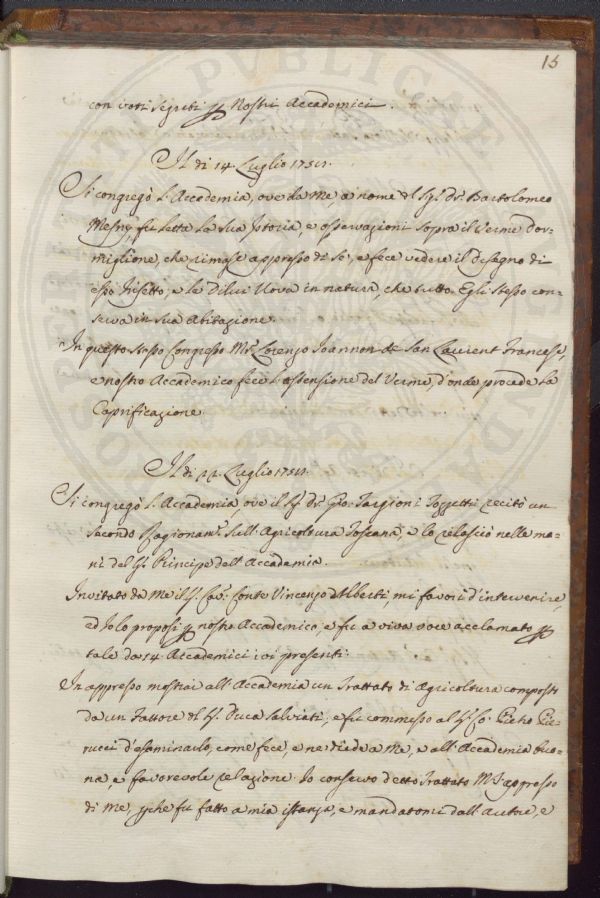 15
con voti segreti p Nostri Accademici.
Il di 14. Luglio 175
Si congregò l'Accademia, ove da me, a nome del Sig.r D.r Bartolomeo
Mesny, fu letta la sua Istoria, e osservazioni sopra il Verme Dor-
miglione, che rimase appresso di sè, e fece vedere il disegno di
esso Insetto, e le Dilui Uova in natura, che tutto Egli stesso con-
serva in sua abitazione.
In questo stesso Congresso Mr. Lorenzo Joannon de San Laurent Francese,
e nostro Accademico fece l'ostensione del Verme, d'onde procede la
Caprificazione.
Il di 22. Luglio 175
Si congregò l'Accademia, ove il Sig. D.r Gio. Targioni Tozzetti recitò un
secondo Ragionam.o sull'Agricoltura Toscana, e lo rilasciò nelle ma-
ni del Sig. Principe dell'Accademia.
Invitato da me il Sig. Cav. Conte Vincenzo d'Alberti, mi favorì d'intervenire,
ed Io lo proposi p nostro Accademico, e fu a viva voce acclamato p
tale da 14. Accademici ivi presenti.
In appresso mostrai all'Accademia un Trattato di Agricoltura composto
da un Fattore del Sig. Duca Salviati, e fu commesso al Sig. Pietro
d'esaminarlo, come fece, e ne diede a me, e all'Accademia buo-
na, e favorevole relazione. Io conservo detto Trattato MS appresso
di me, pche fu fatto a mia istanza, e mandatomi dall'Autore, e